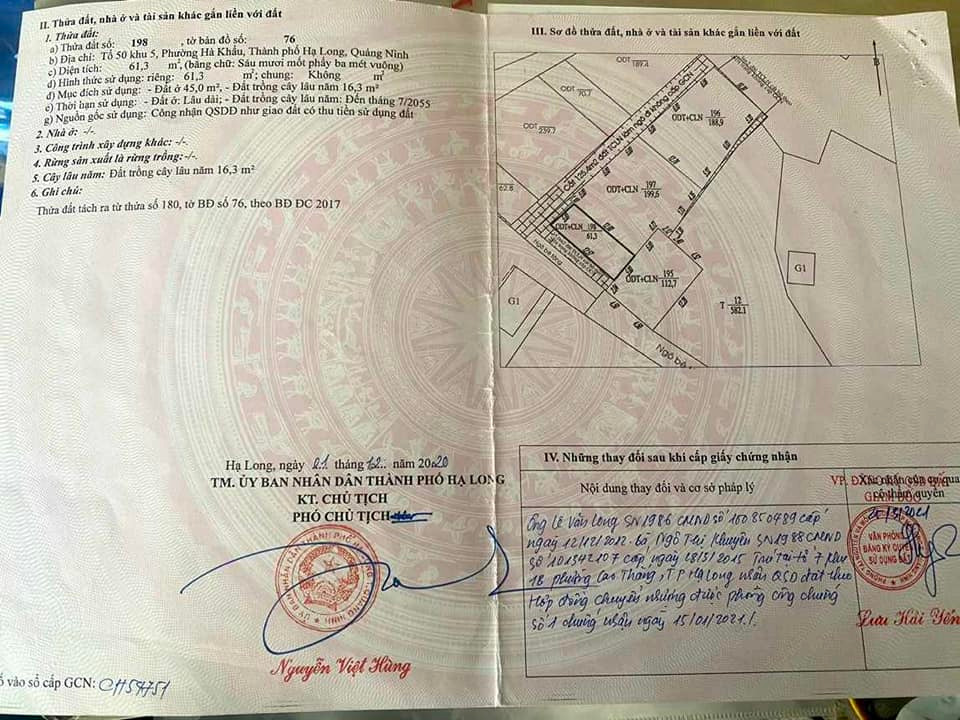 II. Thửa đất, nhà ở và tài sản khác gắn liền với đất
1. Thửa đất:
a) Thửa đất số: 198 , tờ bản đồ số: 76
b) Địa chỉ: Tổ 50 khu 5, Phường Hà Khẩu, Thành phố Hạ Long, Quảng Ninh
c) Diện tích: 61,3 m², (bằng chữ: Sáu mươi mốt phẩy ba mét vuông)
d) Hình thức sử dụng: riêng: 61,3 m²; chung: Không m²
đ) Mục đích sử dụng: - Đất ở 45,0 m², - Đất trồng cây lâu năm 16,3 m²
e) Thời hạn sử dụng: - Đất ở: Lâu dài; - Đất trồng cây lâu năm: Đến tháng 7/2055
g) Nguồn gốc sử dụng: Công nhận QSDĐ như giao đất có thu tiền sử dụng đất
2. Nhà ở: -/-
3. Công trình xây dựng khác: -/-
4. Rừng sản xuất là rừng trồng: -/-
5. Cây lâu năm: Đất trồng cây lâu năm 16,3 m²
6. Ghi chú:
Thửa đất tách ra từ thửa số 180, tờ BĐ số 76, theo BĐ ĐC 2017
Hạ Long, ngày 21 tháng 12 năm 2020
TM. ỦY BAN NHÂN DÂN THÀNH PHỐ HẠ LONG
KT. CHỦ TỊCH
PHÓ CHỦ TỊCH
Nguyễn Việt Hùng
số vào sổ cấp GCN: CH54751
III. Sơ đồ thửa đất, nhà ở và tài sản khác gắn liền với đất
B
ODT 189.4
ODT 70.7
ODT 239.7
62.8
Cắt 125.4m2 đất TCLN làm ngõ đi không cấp GCN
ODT+CLN 196 188,9
ODT+CLN 197 199,6
ODT+CLN 198 61,3
ODT+CLN 195 112,7
T 12 582.1
G1
G1
Ngõ bê tông
Ngõ bê
IV. Những thay đổi sau khi cấp giấy chứng nhận
Nội dung thay đổi và cơ sở pháp lý
Xác nhận của cơ quan
có thẩm quyền
Ông Lê Văn Long SN 1986 CMND số 100850489 cấp
ngày 12/12/2012. bà Ngô Thị Khuyên SN 1988 CMND
số 101542107 cấp ngày 28/5/2015 Trú tại tổ 7 khu
1B phường Cao Thắng, TP Hạ Long nhận QSD đất theo
Hợp đồng chuyển nhượng được phòng công chứng
số 1 chứng nhận ngày 15/01/2021./.
GIÁM ĐỐC
VĂN PHÒNG
ĐĂNG KÝ QUYỀN
SỬ DỤNG ĐẤT
Lưu Hải Yến